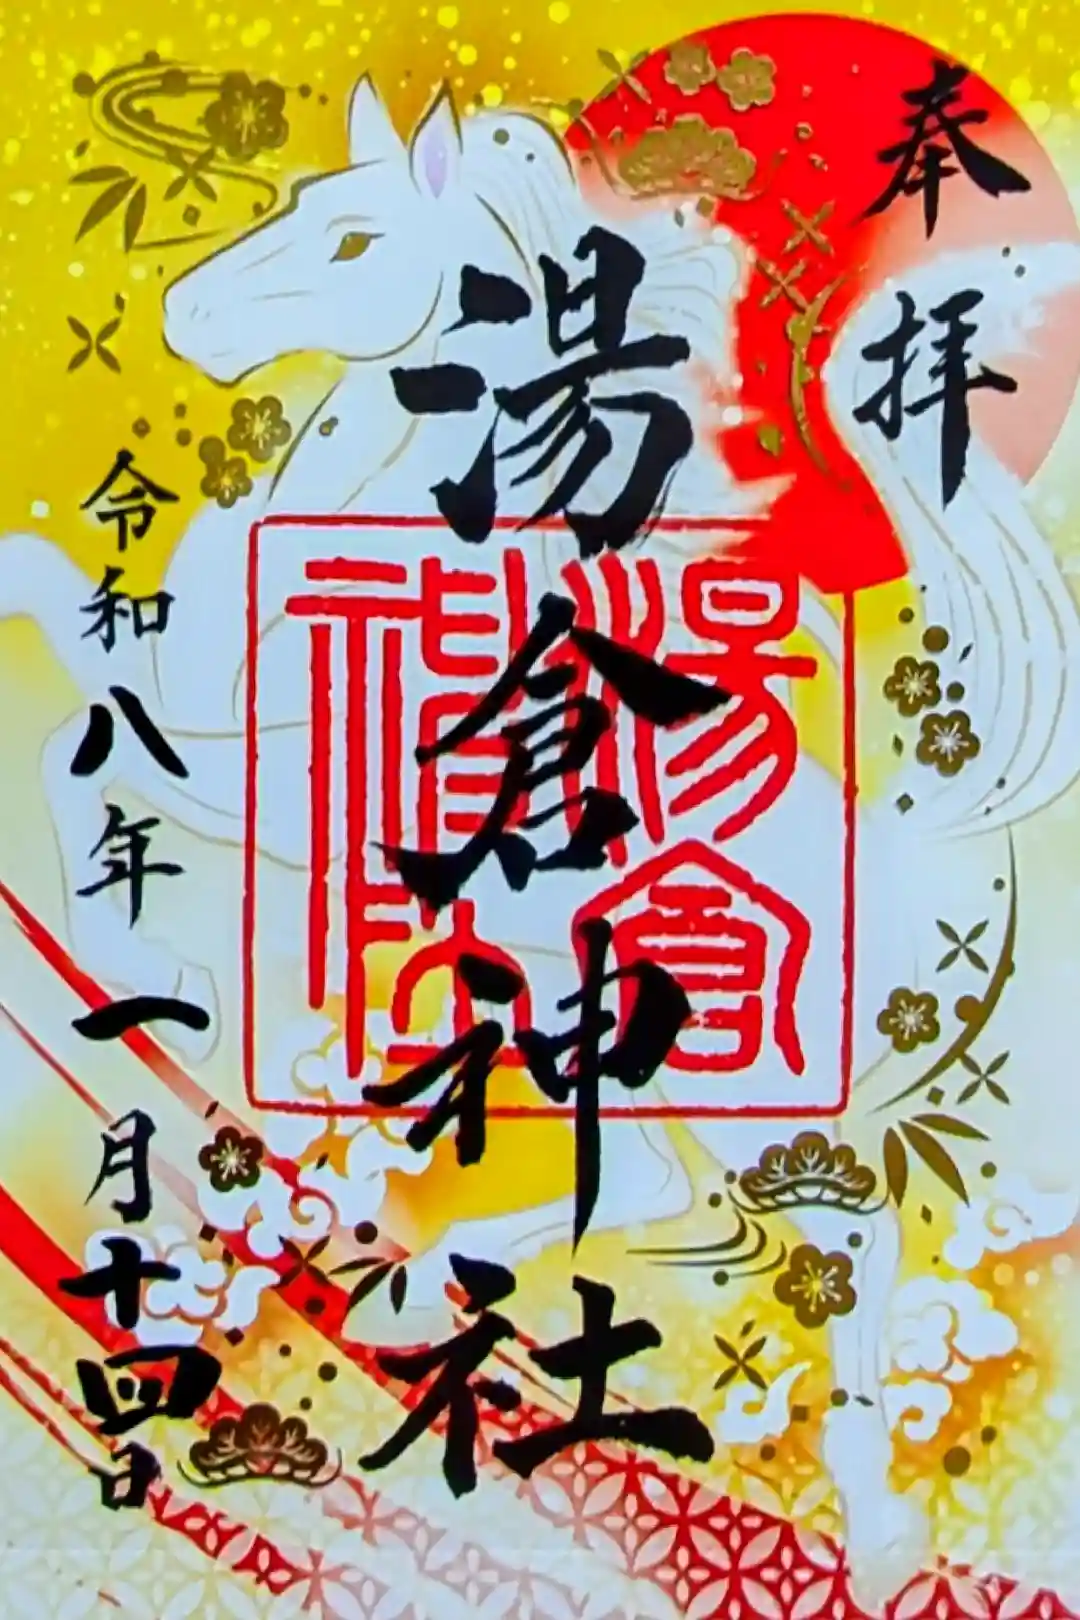 奉拝
湯倉神社
湯倉神社
令和八年一月十四日